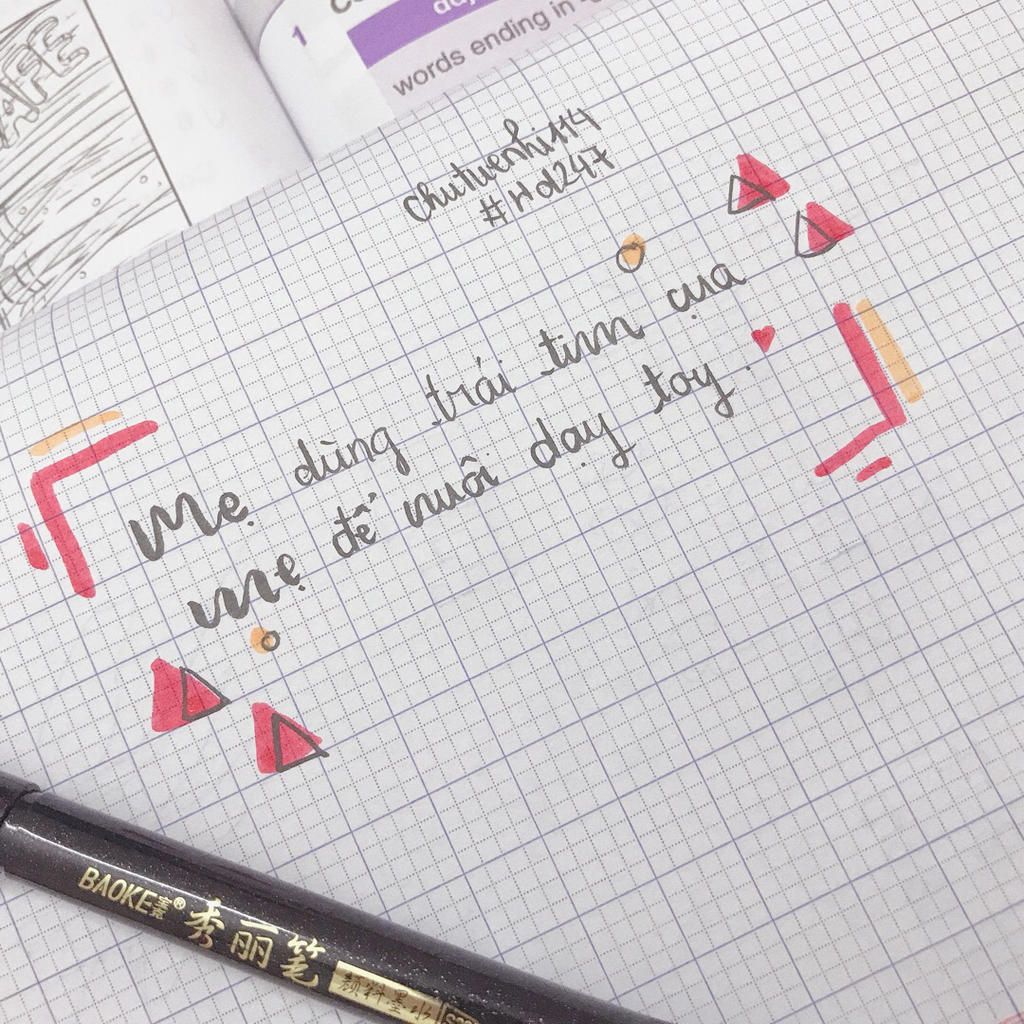 AFE
1
words ending in -
chutuenhi114
#Hd247
Mẹ dùng trái tim của
mẹ để nuôi dạy toy.
BAOKE宝克® 秀丽笔 颜料墨水